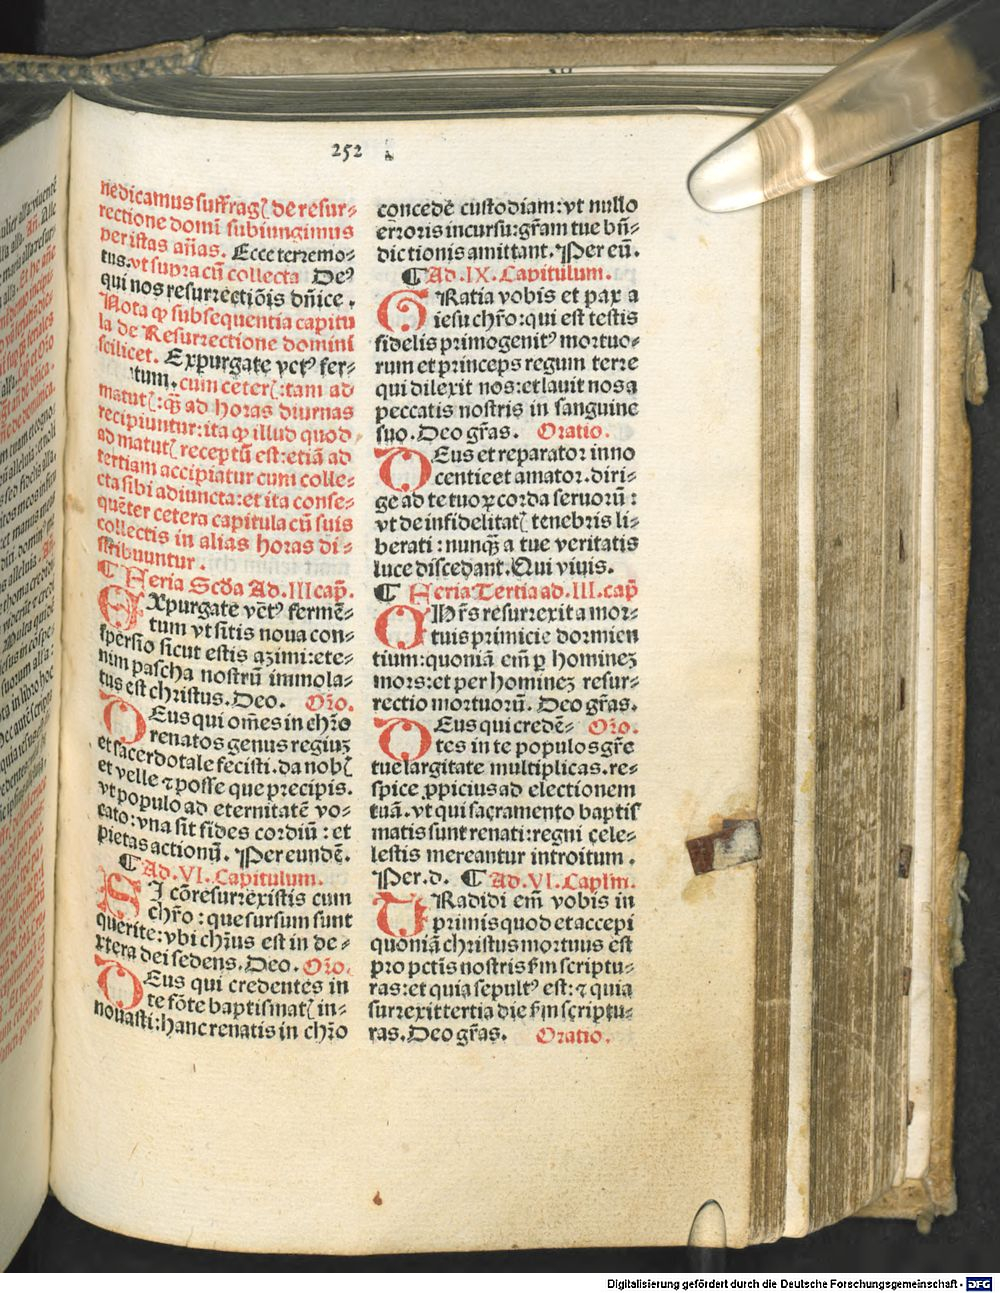 252
nedicamus suffragꝭ de resur⸗
rectione domĩ subiungimus
per istas añas. Ecce terremo⸗
tus. vt supra cũ collecta Deꝰ
qui nos resurrectiõis dñice.
Nota ꝙ subsequentia capitu
la de Resurrectione domini
scilicet. Expurgate vetꝰ fer⸗
tum. cum ceterꝭ: tam ad
matutꝭ: ꝙ̃ ad horas diurnas
recipiuntur: ita ꝙ illud quod
ad matutꝭ receptũ est: etiã ad
tertiam accipiatur cum colle⸗
cta sibi adiuncta: et ita conse⸗
quẽter cetera capitula cũ suis
collectis in alias horas di⸗
stribuuntur.
¶ Feria Scďa Ad. III cap̃.
EXpurgate vetꝰ fermẽ⸗
tum vt sitis noua con⸗
spersio sicut estis azimi: ete⸗
nim pascha nostrũ immola⸗
tus est christus. Deo. Oꝛ̃o.
DEus qui om̃es in chꝛ̃o
renatos genus regiuꝫ
et sacerdotale fecisti. da nobꝭ
et velle ⁊ posse que precipis.
vt populo ad eternitatẽ vo⸗
cato: vna sit fides coꝛdiũ: et
pietas actionũ. Per eundẽ.
¶ Ad. VI. Capitulum.
SI cõresurrexistis cum
chꝛ̃o: que sursum sunt
querite: vbi chꝛ̃us est in de⸗
xtera dei sedens. Deo. Oꝛ̃o.
DEus qui credentes in
te fõte baptismatꝭ in⸗
nouasti: hanc renatis in chꝛ̃o
concede custodiam: vt nullo
erroris incursu: gr̃am tue bñ⸗
dictionis amittant. Per eũ.
¶ Ad. IX. Capitulum.
GRatia vobis et pax a
iesu chꝛ̃o: qui est testis
fidelis primogenitꝰ mortuo⸗
rum et princeps regum terre
qui dilexit nos: et lauit nos a
peccatis nostris in sanguine
suo. Deo gr̃as. Oratio.
DEus et reparator inno
centie et amator. diri⸗
ge ad te tuoꝝ corda seruorũ:
vt de infidelitatꝭ tenebris li⸗
berati: nunꝙ̃ a tue veritatis
luce discedant. Qui viuis.
¶ Feria Tertia ad. III. cap̃
CHr̃s resurrexit a mor⸗
tuis primicie dormien
tium: quoniã em̃ ꝑ hominez
mors: et per hominez resur⸗
rectio mortuorũ. Deo gr̃as.
DEus qui credẽ⸗ Oꝛ̃o.
tes in te populos gr̃e
tue largitate multiplicas. re⸗
spice ꝓpicius ad electionem
tuã. vt qui sacramento baptis
matis sunt renati: regni cele⸗
lestis mereantur introitum.
Per. d. ¶ Ad. VI. Caplm̃.
TRadidi em̃ vobis in
primis quod et accepi
quoniã christus mortuus est
pro pctis nostris ẜm scriptu⸗
ras: et quia sepultꝰ est: ⁊ quia
surrexit tertia die ẜm scriptu⸗
ras. Deo gr̃as. Oratio.
Digitalisierung gefördert durch die Deutsche Forschungsgemeinschaft - DFG